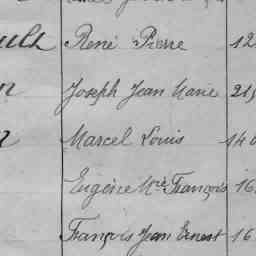 ult René Pierre 12
n Joseph Jean Marie 21
Marcel Louis 14
Eugène Mie François 16
François Jean Ernest 16